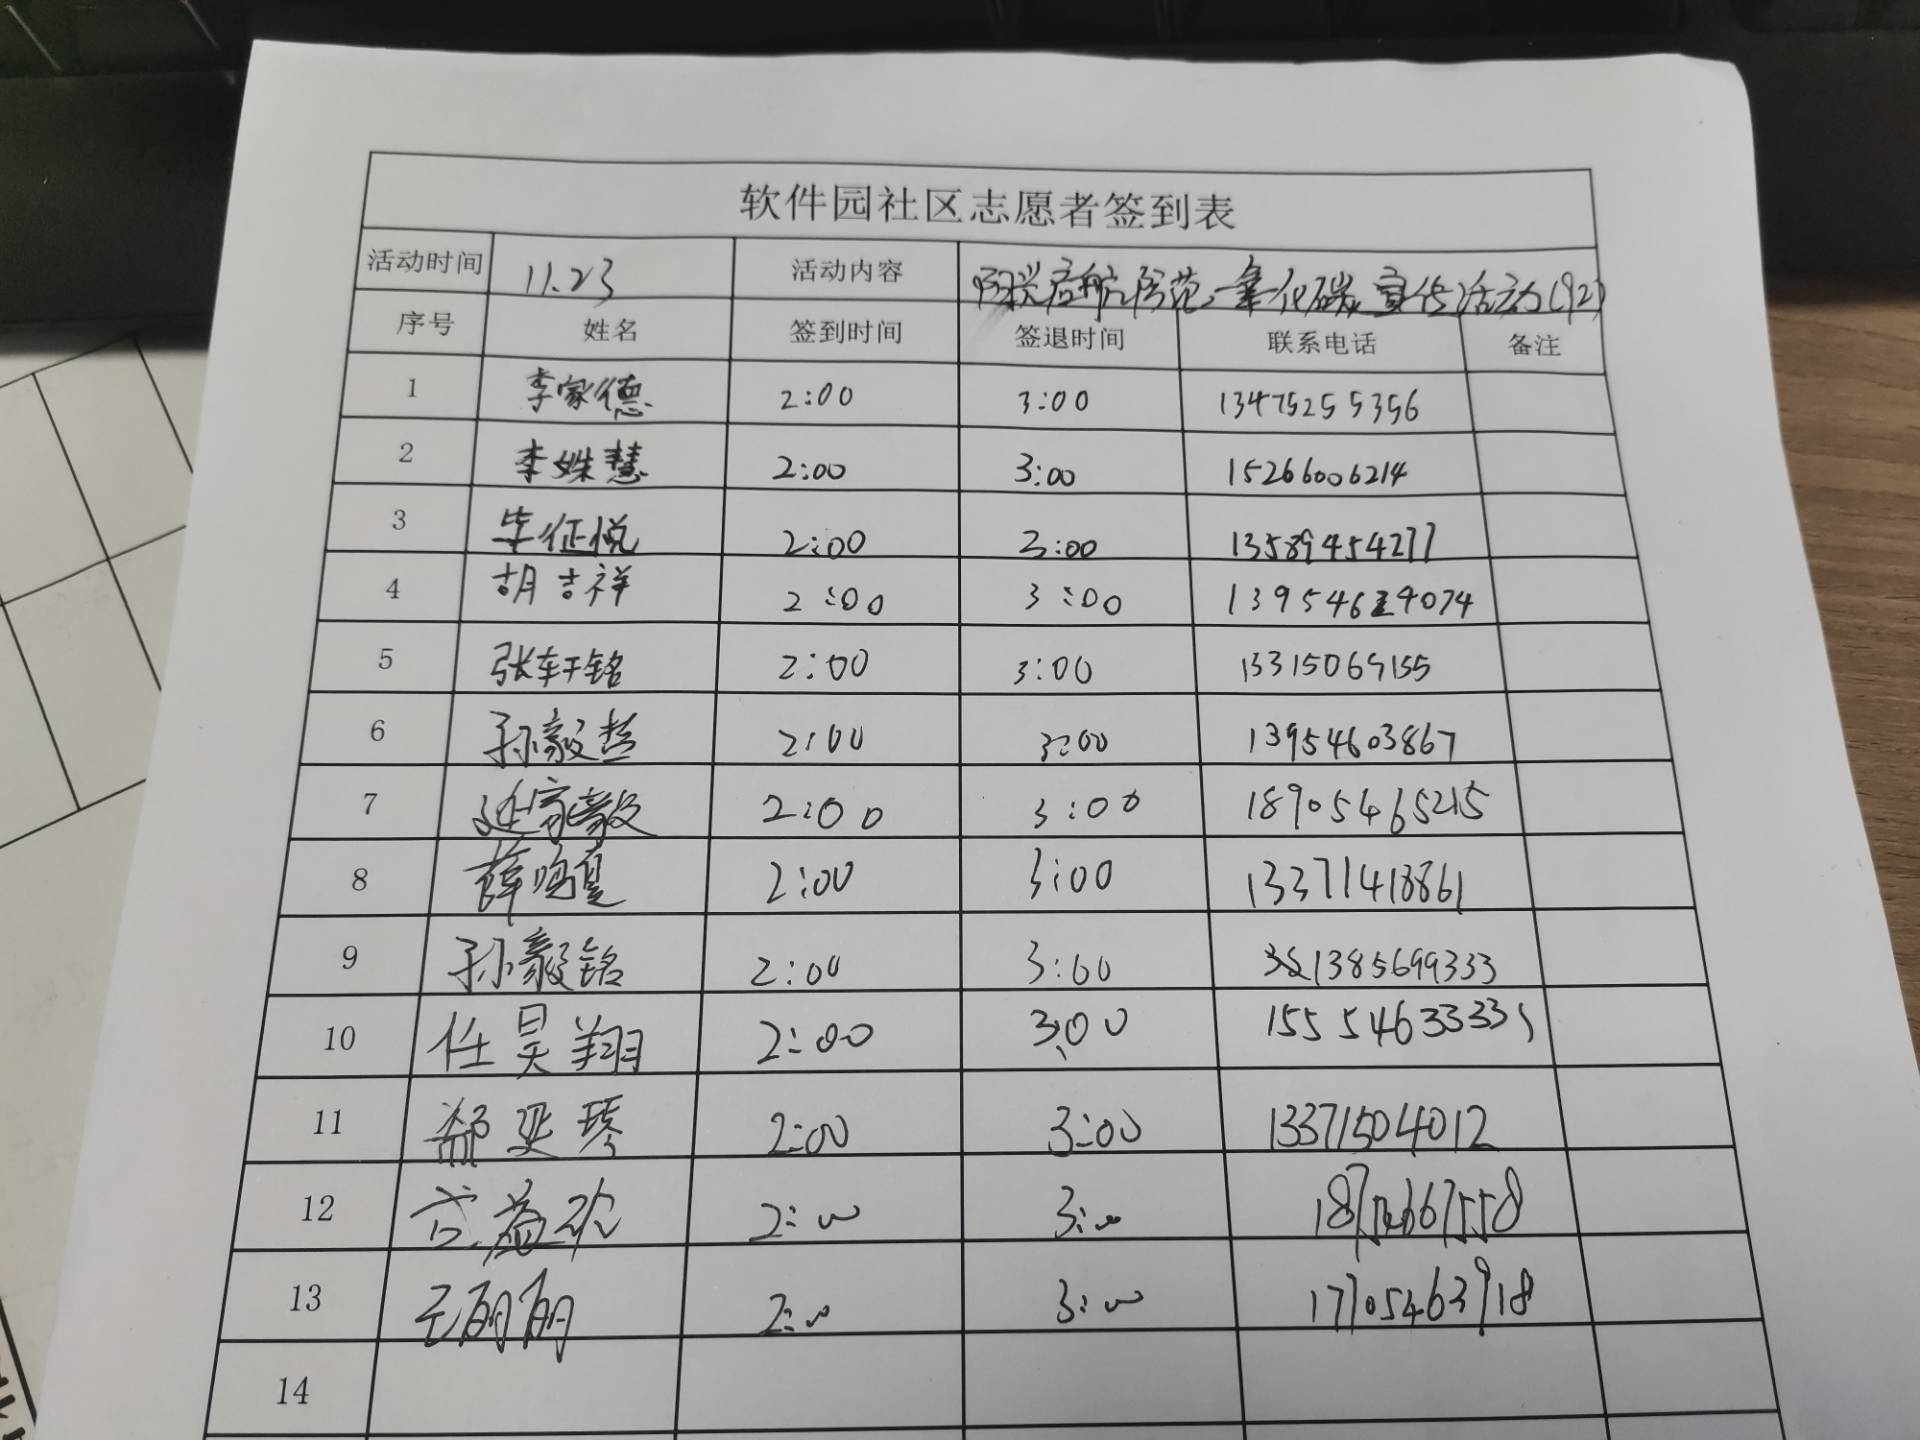 软件园社区志愿者签到表
活动时间 11.23 活动内容 启航防范一氧化碳宣传活动(92)
序号 姓名 签到时间 签退时间 联系电话 备注
1 李家德 2:00 3:00 13475255356
2 李姝慧 2:00 3:00 15266006214
3 毕征悦 2:00 3:00 13589454277
4 胡吉祥 2:00 3:00 13954629074
5 张轩铭 2:00 3:00 13315069155
6 孙毅哲 2:00 3:00 13954603867
7 延家毅 2:00 3:00 18905465215
8 薛鸣夏 2:00 3:00 13371418861
9 孙毅铭 2:00 3:00 1385699333
10 任昊翔 2:00 3:00 15554633335
11 郝亚琴 2:00 3:00 13371504012
12 2:00 3:00 18754667558
13 王丽丽 2:00 3:00 17705463918
14